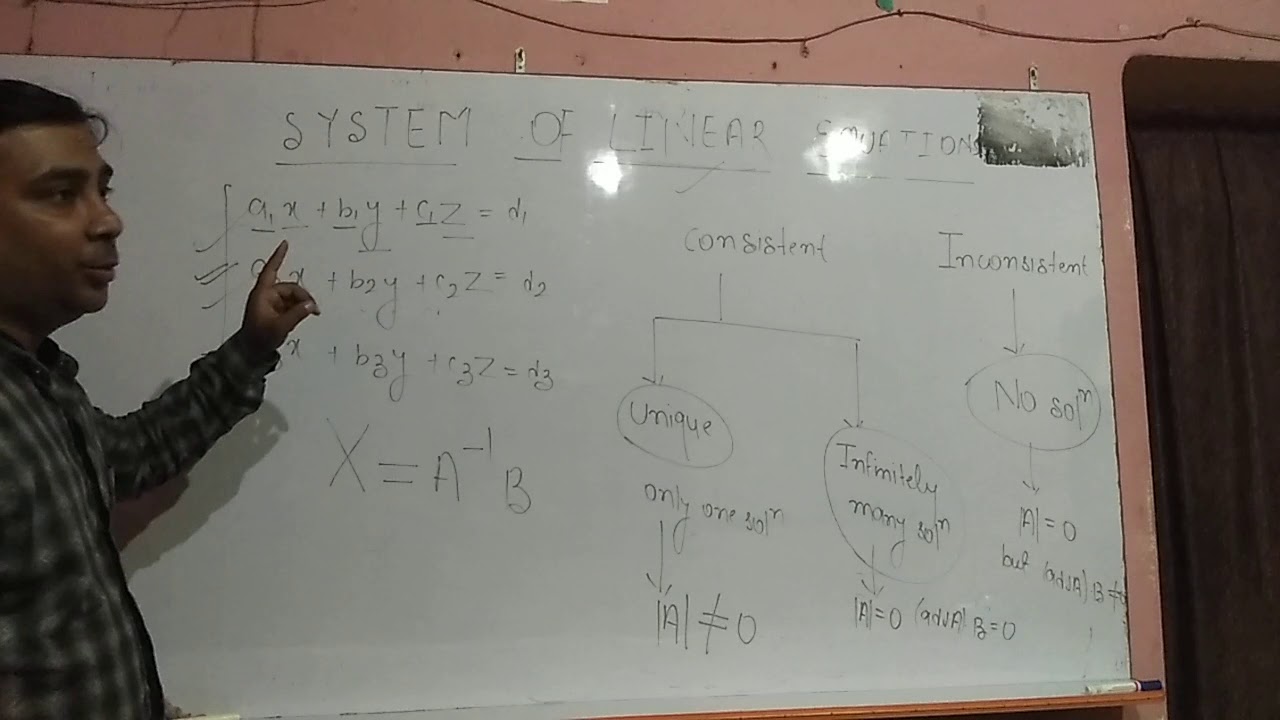 SYSTEM OF LINEAR EQUATIONS
a₁x + b₁y + c₁z = d₁
x + b₂y + c₂z = d₂
x + b₃y + c₃z = d₃
X = A⁻¹ B
Consistent
Unique
only one solⁿ
|A| ≠ 0
Infinitely
many solⁿ
|A| = 0 (adjA) B = 0
Inconsistent
No solⁿ
|A| = 0
but (adjA) B ≠ 0